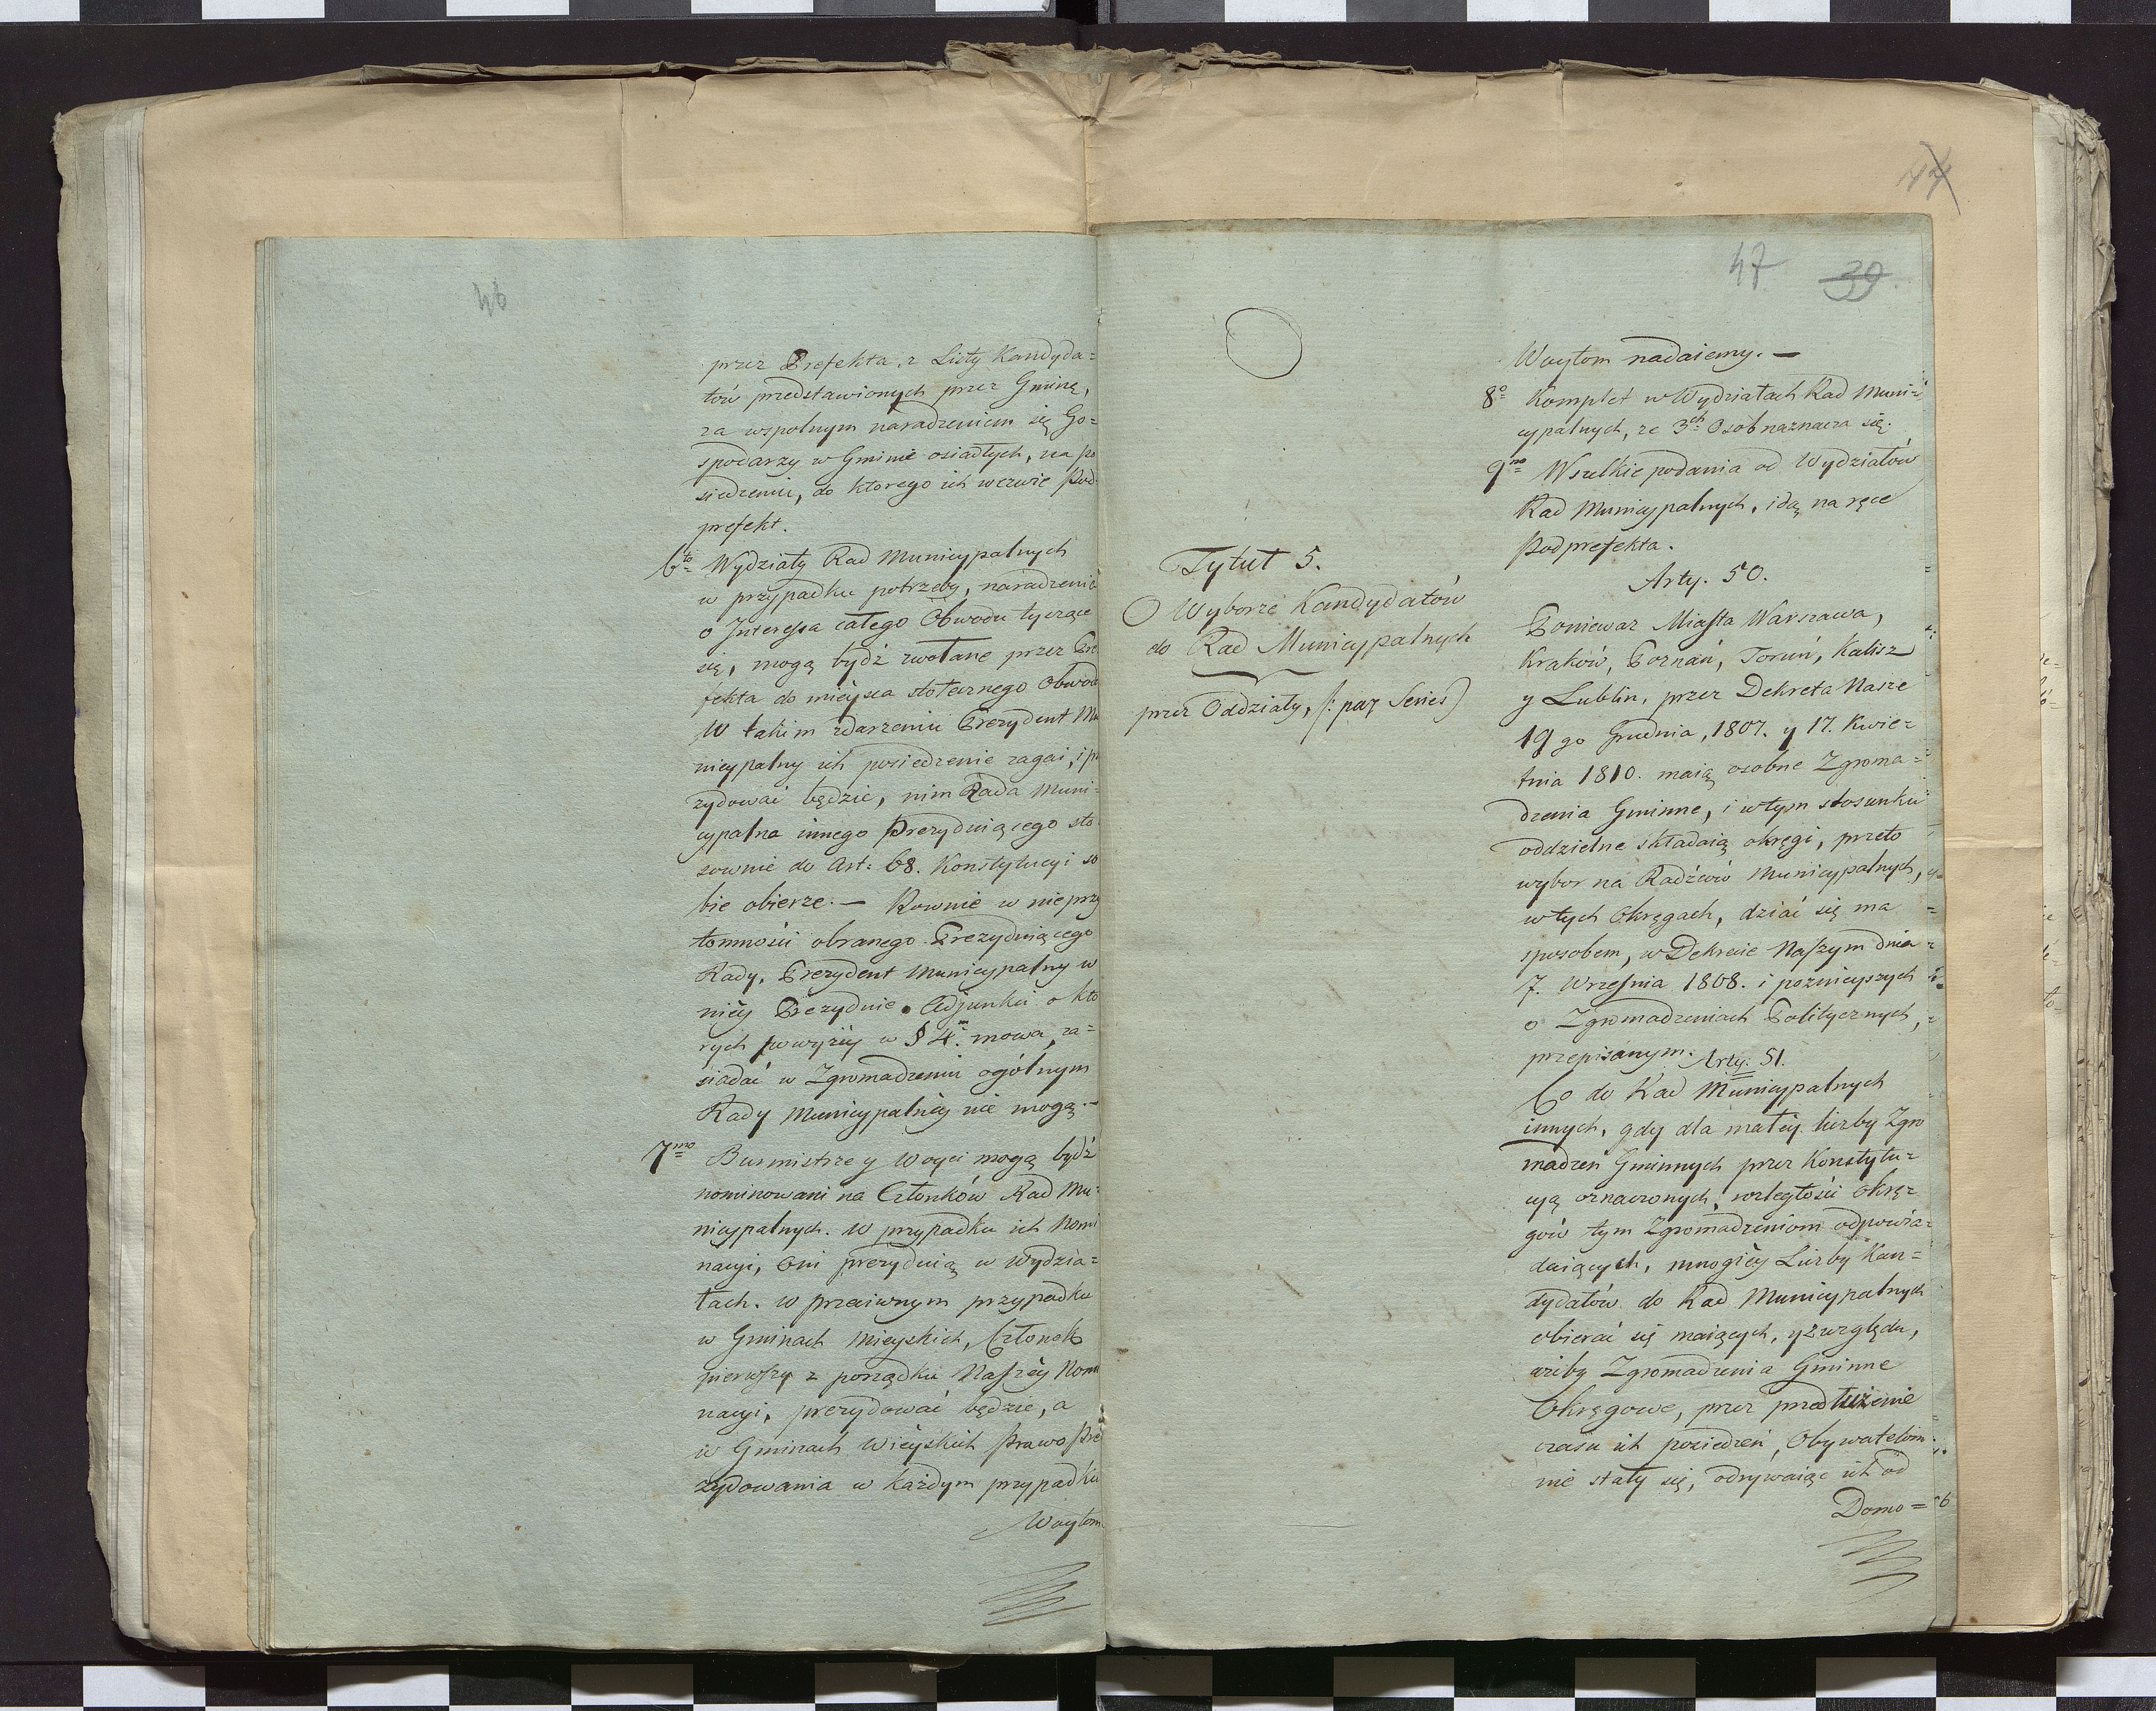 46
przez Prefekta, z Listy Kandyda=
tów przedstawionych przez Gminę,
za wspolnym naradzeniem się Go=
spodarzy w Gminie osiadłych, na po
siedzeniu, do ktorego ich wezwie Pod
prefekt.
6to Wydziały Rad Municypalnych
w przypadku potrzeby, naradzenia
o Interessa całego Obwodu tyczące
się, mogą bydź zwołane przez Pre
fekta do mieysca stołecznego Obwodu
W takim zdarzeniu Prezydent Mu
nicypalny ich posiedzenie zagai, i pre
zydować będzie, nim Rada Muni=
cypalna innego Prezyduiącego sto
sownie do Art: 68. Konstytucyi so
bie obierze. — Rownie w nieprzy
tomności obranego Prezyduiącego
Rady, Prezydent Municypalny w
niéy Prezyduie. Adjunkci o kto
rych powyżéy w § 4. mowa, za=
siadać w Zgromadzeniu ogólnym
Rady Municypalnéy nie mogą. —
7mo Burmistrze y Woyci mogą bydź
nominowani na Członków Rad Mu=
nicypalnych. W przypadku ich Nomi
nacyi, Oni prezyduią w Wydzia=
łach. W przeciwnym przypadku
w Gminach Mieyskich, Członek
pierwszy z porządku Naszéy Nomi
nacyi, prezydować będzie, a
w Gminach Wieyskich Prawo Pre
zydowania w każdym przypadku
Woytom
47
47 39
Woytom nadaiemy. —
8o Komplet w Wydziałach Rad Muni=
cypalnych, ze 3ch Osob naznacza się.
9no Wszelkie podania od Wydziałów
Rad Municypalnych, idą na ręce
Podprefekta.
Tytuł 5.
O Wyborze Kandydatów
do Rad Municypalnych
przez Oddziały, (: par Series)
Arty. 50.
Ponieważ Miasta Warszawa,
Kraków, Poznań, Toruń, Kalisz
y Lublin, przez Dekreta Nasze
19go Grudnia, 1807. y 17. Kwie=
tnia 1810. maią osobne Zgroma=
dzenia Gminne, i w tym stosunku
oddzielne składaią okręgi, przeto
wybor na Radźców Municypalnych,
w tych Okręgach, dziać się ma
sposobem, w Dekrecie Naszym dnia
7. Września 1808. i poznieyszych
o Zgromadzeniach Politycznych,
przepisanym.
Arty. 51.
Co do Rad Municypalnych
innych, gdy dla małéy liczby Zgro
madzeń Gminnych przez Konstytu=
cyą oznaczonych, rozległości Okrę=
gów tym Zgromadzeniom odpowia=
daiących, mnogiéy Liczby Kan=
dydatów do Rad Municypalnych
obierać się maiących, y z względu,
ażeby Zgromadzenia Gminne
Okręgowe, przez przedłużenie
czasu ich posiedzeń, Obywatelom
nie stały się, odrywaiąc ich od
Domo=